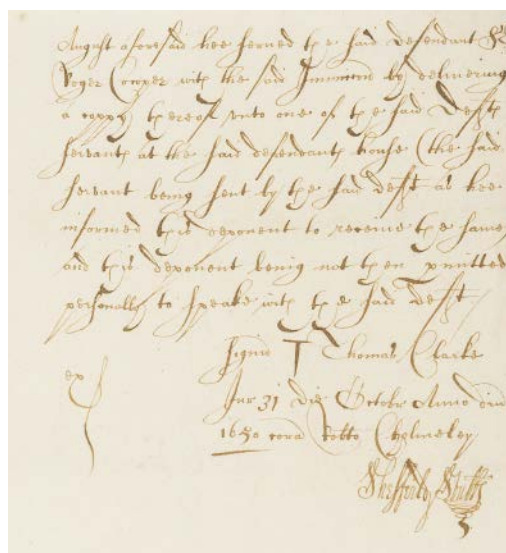 August aforesaid hee served the said defendant Sr
Roger Cooper with the said Iniunccon by delivering
a coppy thereof unto one of the said Defts
servants at the said defendants house (the said
servant being sent by the said defft as hee
informed this deponent to receive the same
and this deponent being not then pmitted
personally to speake with the said defft
Signu T Thomas Clarke
ex
Jur 31 die Octobr Anno dni
1650 cora Robto Cholmeley